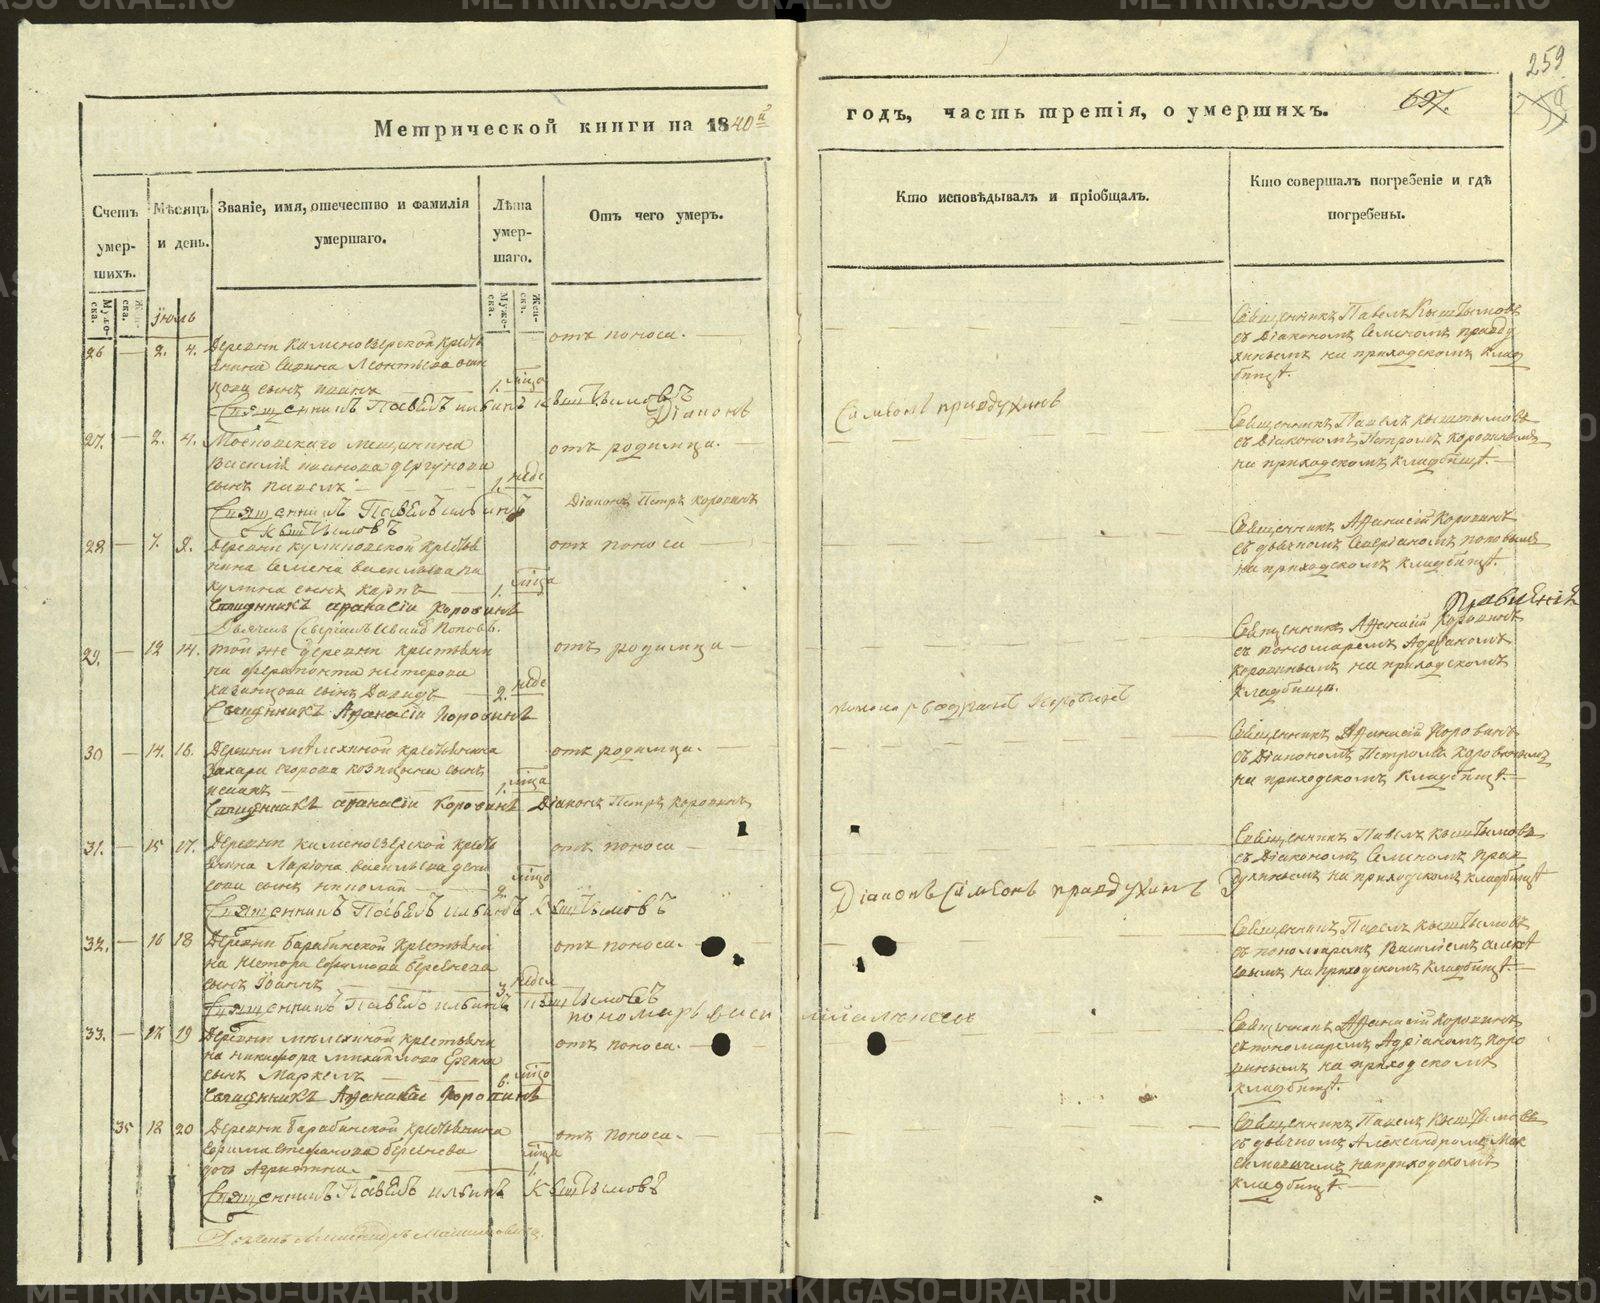 259
Метрической книги на 1840й
годъ, часть третія, о умершихъ.
697.
Счетъ умер-шихъ.
Мужеска.
Женска.
Мѣсяцъ и день.
Званіе, имя, отечество и фамилія умершаго.
Лѣта умер-шаго.
Муже-ска.
Жен-ска.
Отъ чего умеръ.
Кто исповѣдывалъ и пріобщалъ.
Кто совершалъ погребеніе и гдѣ погребены.
Іюль
26 — 2. 4. Деревни Каменоозерской крестья
нина Савина Леонтьева
сынъ
1. мѣсяца
отъ поноса.
Священникъ Павелъ Кыштымовъ
съ Діакономъ Семеномъ Правду
хинымъ на приходскомъ клад
бищѣ.
Священникъ Павелъ Ильинъ Кыштымовъ
Діаконъ
Симеонъ Правдухинъ
27. — 2. 4. Московскаго мещанина
Василія Иванова Дергунова
сынъ Павелъ
1. неде
отъ родимца.
Священникъ Павелъ Кыштымовъ
съ Діакономъ Петромъ Коровинымъ
на приходскомъ кладбищѣ.
Священникъ Павелъ Ильинъ
Кыштымовъ
Діаконъ Петръ Коровинъ
28 — 7. 9. Деревни Куликовской крестья
нина Семена Васильева
Кулика сынъ Карпъ
1. мѣсяца
отъ поноса
Священникъ Афанасій Коровинъ
съ дьячкомъ Северіаномъ Поповымъ
на приходскомъ кладбищѣ.
Священникъ Афанасій Коровинъ
29. — 12 14. Той же деревни крестьяни
на Ферапонта Нестерова
Казанцова сынъ Давидъ
2. неде
отъ родимца
Священникъ Афанасій Коровинъ
съ пономаремъ Адріаномъ
Коровинымъ на приходскомъ
кладбищѣ.
Священникъ Афанасій Коровинъ
30 — 14. 16. Деревни Мелехиной крестьянина
Захара Егорова Козицына сынъ
1. мѣсяца
отъ родимца.
Священникъ Афанасій Коровинъ
съ Діакономъ Петромъ Коровинымъ
на приходскомъ кладбищѣ
Священникъ Афанасій Коровинъ Діаконъ Петръ Коровинъ
31. — 15 17. Деревни Каменоозерской кресть
янина Ларіона Васильева
сынъ Николай
2. мѣсяца
отъ поноса
Священникъ Павелъ Кыштымовъ
съ Діакономъ Семеномъ Прав
духинымъ на приходскомъ кладбищѣ
Священникъ Павелъ Ильинъ Кыштымовъ
Діаконъ Симеонъ Правдухинъ
32. — 16 18 Деревни Барабинской крестьяни
на Нестора Ефимова Береснева
сынъ Іоаннъ
3. недел
отъ поноса.
Священникъ Павелъ Кыштымовъ
съ пономаремъ Василіемъ
на приходскомъ кладбищѣ.
Священникъ Павелъ Ильинъ Кыштымовъ
33. — 17 19 Деревни Мелехиной крестьяни
на Никифора Михайлова
сынъ Маркелъ
6. мѣсяцо
отъ поноса.
Священникъ Афанасій Коровинъ
съ пономаремъ Адріаномъ Коро
винымъ на приходскомъ
кладбищѣ.
Священникъ Афанасій Коровинъ
35 18 20 Деревни Барабинской крестьянина
Ефима Стефанова Береснева
дочь Агрипина
1. мѣсяца
отъ поноса.
Священникъ Павелъ Кыштымовъ
съ дьячкомъ Александромъ Мак
симовичемъ на приходскомъ
кладбищѣ.
Священникъ Павелъ Ильинъ Кыштымовъ
METRIKI.GASO-URAL.RU